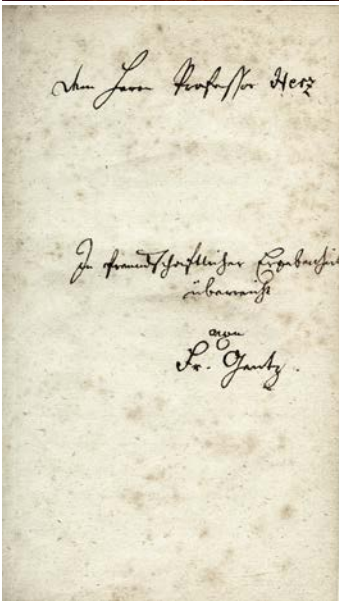 Dem Herrn Professor Herz
In freundschaftlicher Ergebenheit
überreicht
von
Fr. Gentz.